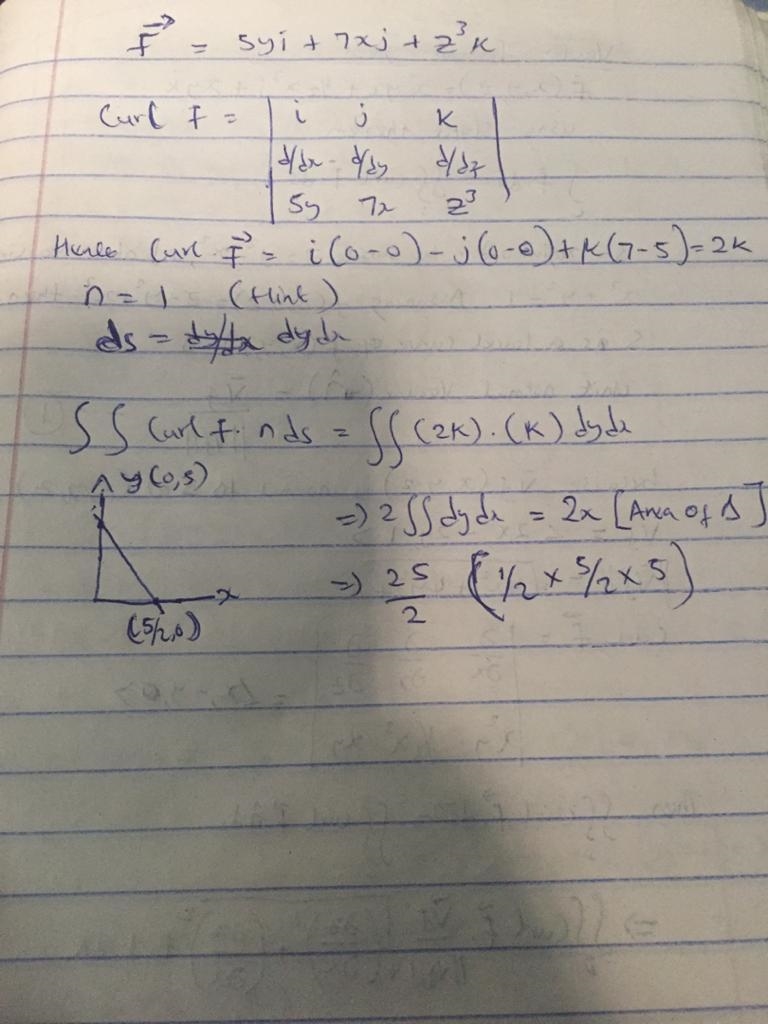 F = 5yi + 7xj + z³k
Curl F = | i j k |
| d/dx d/dy d/dz |
| 5y 7x z³ |
Hence Curl F = i(0-0) - j(0-0) + k(7-5) = 2k
n = 1 (Hint)
ds = dy/dx dydx
∫∫ Curl F. n ds = ∫∫ (2k).(k) dydx
y(0,5)
=> 2∫∫ dydx = 2x [Area of Δ]
=> 25/2 (1/2 x 5/2 x 5)
x
(5/2,0)